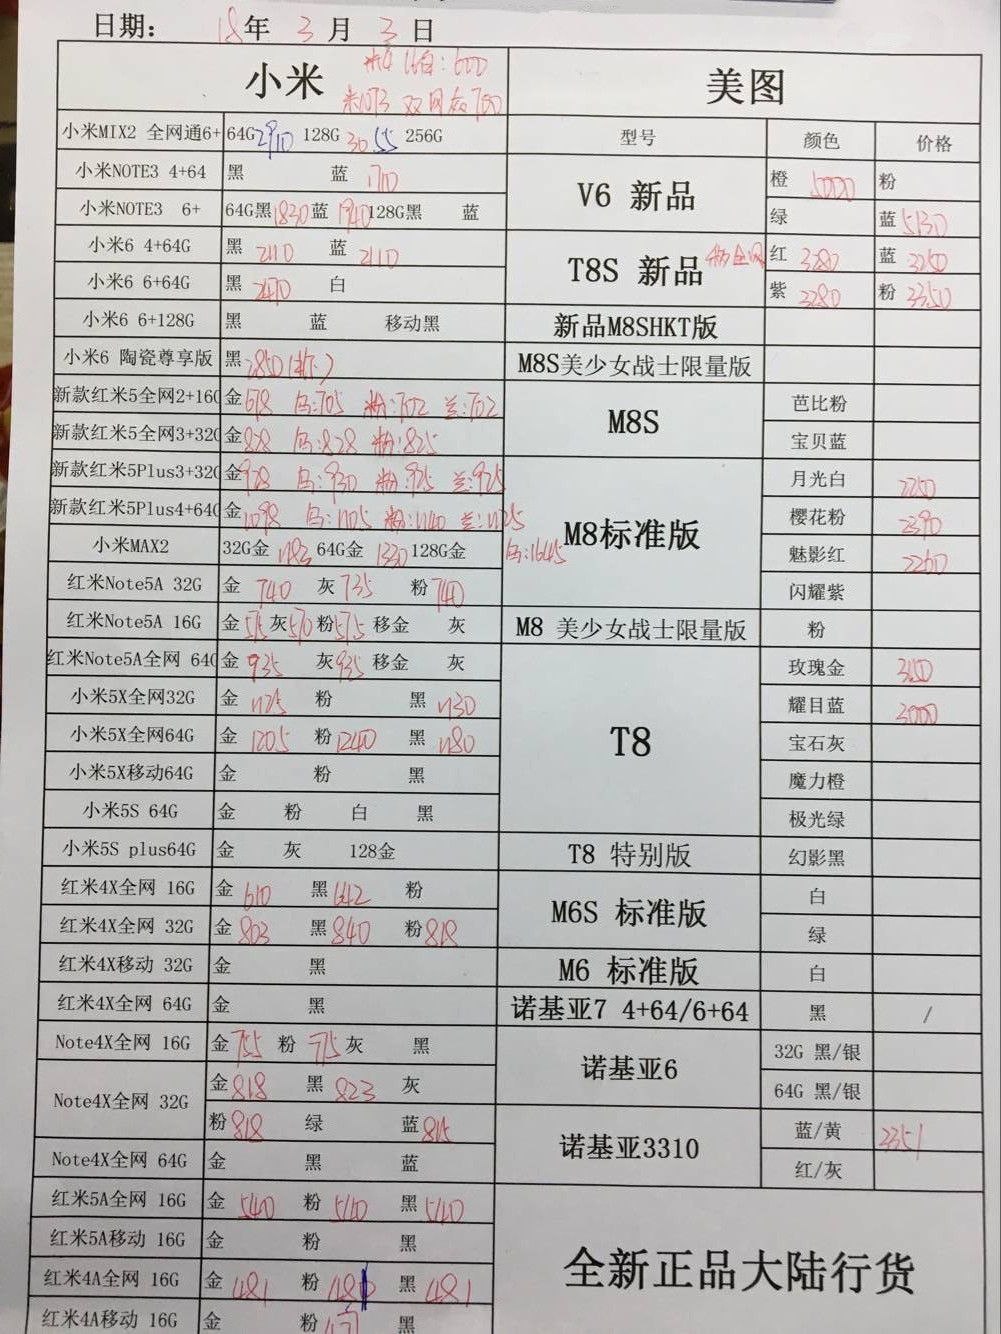 日期: 18年 3月 3日
小米 米4 16白:600
米NOT3 双网 700
美图
小米MIX2 全网通6+ 64G2910 128G 3055 256G
型号 颜色 价格
小米NOTE3 4+64 黑 蓝 1710
V6 新品 橙 5000 粉
小米NOTE3 6+ 64G黑1830 蓝 1940 128G黑 蓝
绿 蓝 5130
小米6 4+64G 黑 2110 蓝 2110
T8S 新品 红 3280 蓝 3250
小米6 6+64G 黑 2470 白
紫 3280 粉 3350
小米6 6+128G 黑 蓝 移动黑
新品M8SHKT版
小米6 陶瓷尊享版 黑 2850
M8S美少女战士限量版
新款红米5全网2+16G 金 698 乌:705 粉:702 兰:702
M8S 芭比粉
新款红米5全网3+32G 金 828 乌:828 粉:825
宝贝蓝
新款红米5Plus3+32G 金 928 乌:930 粉:925 兰:925
M8标准版 月光白 2250
新款红米5Plus4+64G 金 1098 乌:1105 粉:1140 兰:1125
樱花粉 2390
小米MAX2 32G金 1193 64G金 1330 128G金 乌:1645
魅影红 2260
红米Note5A 32G 金 740 灰 735 粉 740
闪耀紫
红米Note5A 16G 金 575 灰 570 粉 575 移金 灰
M8 美少女战士限量版 粉
红米Note5A全网 64G 金 935 灰 935 移金 灰
T8 玫瑰金 3150
小米5X全网32G 金 1125 粉 黑 1130
耀目蓝 3000
小米5X全网64G 金 1205 粉 1240 黑 1180
宝石灰
小米5X移动64G 金 粉 黑
魔力橙
小米5S 64G 金 粉 白 黑
极光绿
小米5S plus64G 金 灰 128金
T8 特别版 幻影黑
红米4X全网 16G 金 610 黑 642 粉
M6S 标准版 白
红米4X全网 32G 金 803 黑 840 粉 818
绿
红米4X移动 32G 金 黑
M6 标准版 白
红米4X全网 64G 金 黑
诺基亚7 4+64/6+64 黑 /
Note4X全网 16G 金 755 粉 775 灰 黑
诺基亚6 32G 黑/银
Note4X全网 32G 金 818 黑 823 灰
64G 黑/银
粉 818 绿 蓝 815
诺基亚3310 蓝/黄 3351
Note4X全网 64G 金 黑 蓝
红/灰
红米5A全网 16G 金 540 粉 540 黑 540
红米5A移动 16G 金 粉 黑
全新正品大陆行货
红米4A全网 16G 金 481 粉 481 黑 481
红米4A移动 16G 金 粉 黑